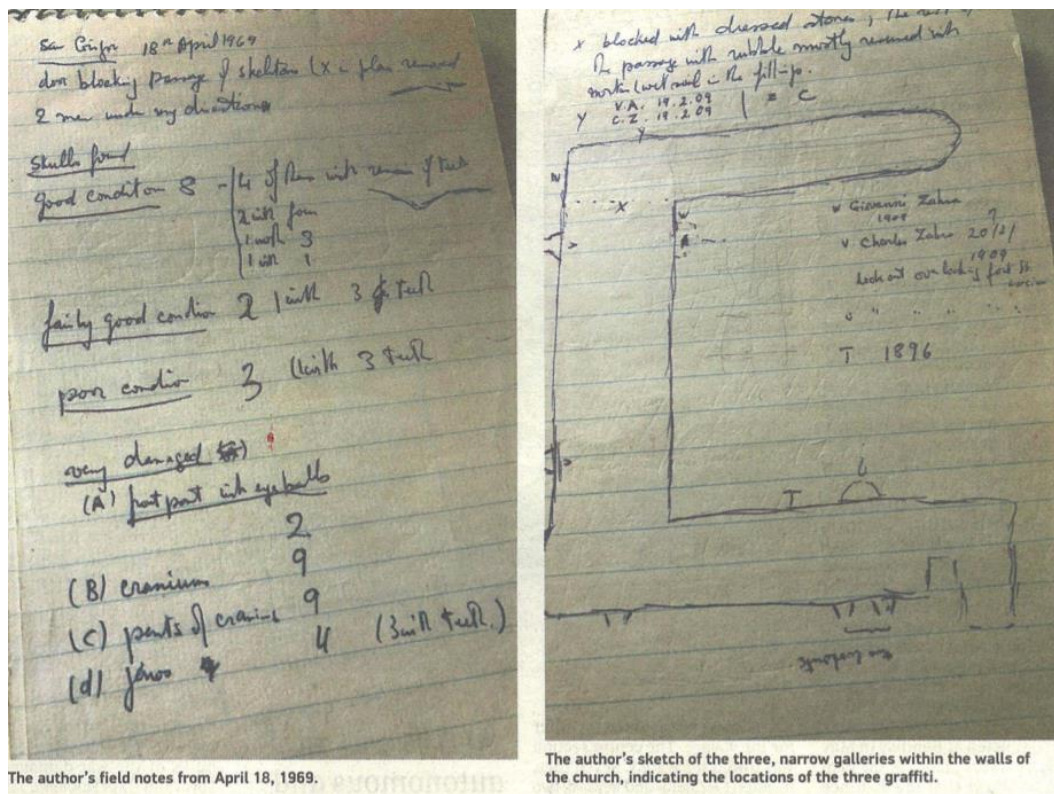 18th April 1969
door blocking passage of skeletons (X in plan removed
2 men under my directions
Skulls found
good condition 8 - 4 of them with remains of teeth
2 with four
1 with 3
1 with 1
fairly good condition 2 1 with 3 teeth
poor condition 3 (1 with 3 teeth
very damaged
(A) front part with eyeballs
2
(B) cranium 9
(C) parts of cranium 9
(d) jaws 4 (3 with teeth.)
The author's field notes from April 18, 1969.
x blocked with dressed stones; the rest of
the passage with rubble mostly removed with
in the fill-up.
Y V.A. 19.2.09
C.Z. 19.2.09 z C
Y
z
X
w Giovanni Zahra
1909
v Charles Zahra 20/2/
1909
Look out overlooking
" " " "
T 1896
T
The author's sketch of the three, narrow galleries within the walls of
the church, indicating the locations of the three graffiti.